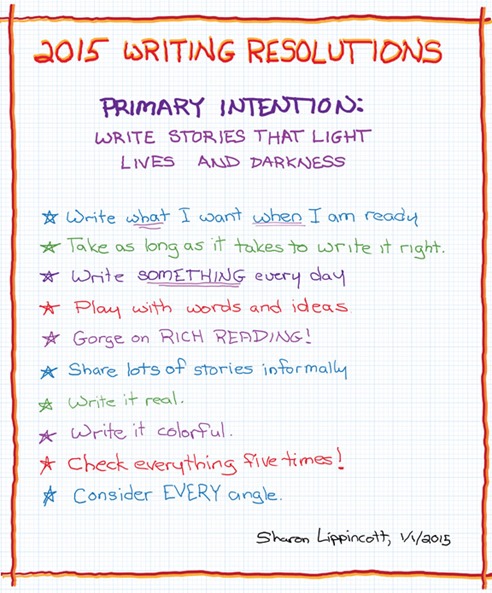 2015 WRITING RESOLUTIONS
PRIMARY INTENTION:
WRITE STORIES THAT LIGHT
LIVES AND DARKNESS
☆ Write what I want when I am ready
☆ Take as long as it takes to write it right.
☆ Write SOMETHING every day
☆ Play with words and ideas
☆ Gorge on RICH READING!
☆ Share lots of stories informally
☆ Write it real.
☆ Write it colorful.
☆ Check everything five times!
☆ Consider EVERY angle.
Sharon Lippincott, 1/1/2015